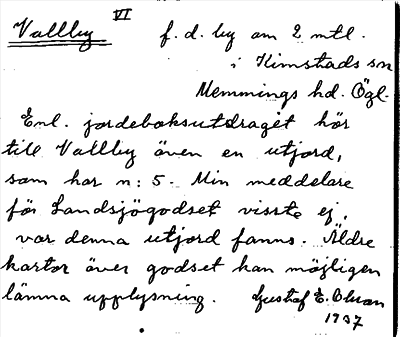 Vallby VI f. d. by om 2 mtl.
i Kimstads sn
Memmings hd. Ögl.
Enl. jordeboksutdraget hör
till Vallby även en utjord,
som har n: 5. Min meddelare
för Landsjögodset visste ej,
var denna utjord fanns. Äldre
kartor över godset kan möjligen
lämna upplysning. Gustaf E. Olsson
1937